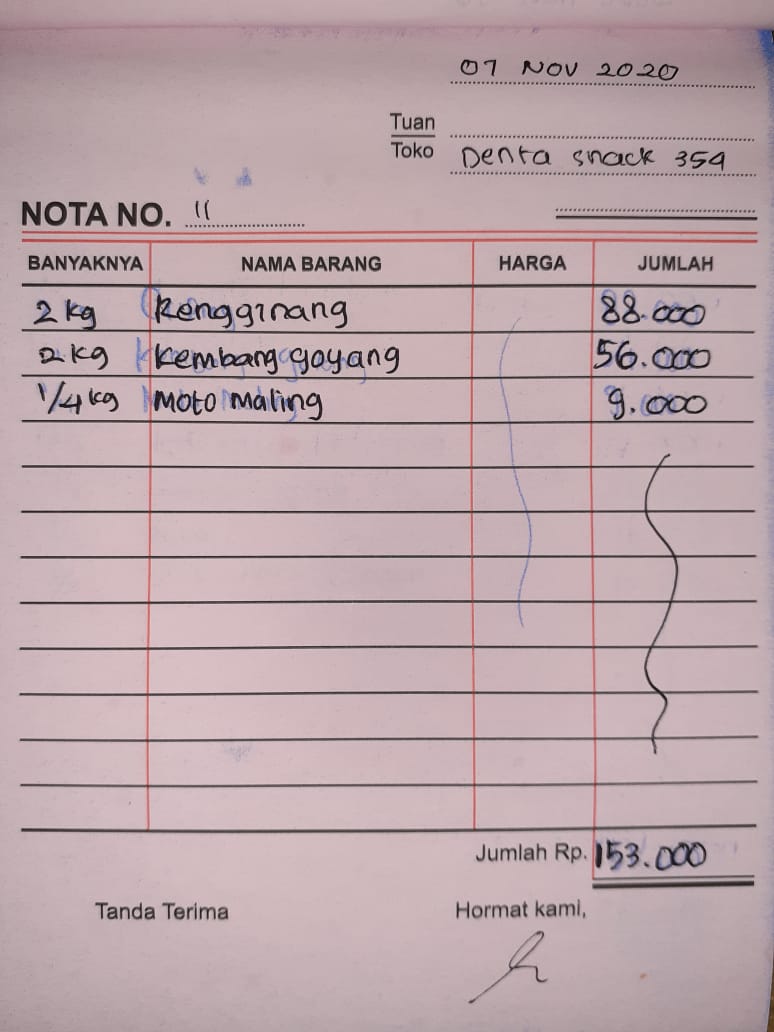 07 NOV 2020
Tuan
Toko Denta snack 354
NOTA NO. 11
BANYAKNYA NAMA BARANG HARGA JUMLAH
2 kg Rengginang 88.000
2 kg Kembang goyang 56.000
1/4 kg Moto maling 9.000
Jumlah Rp. 153.000
Tanda Terima Hormat kami,